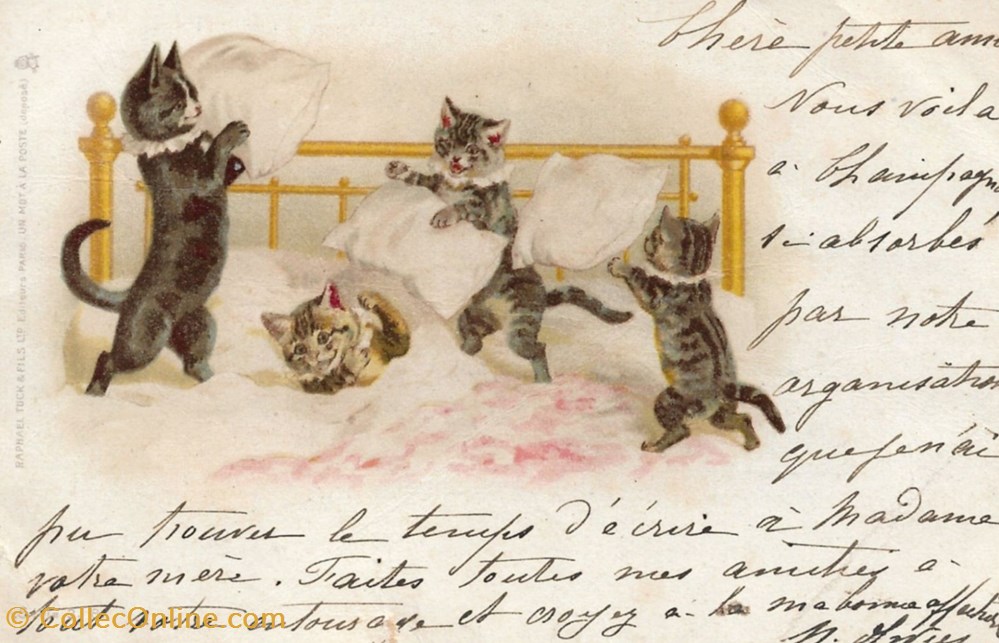 Chère petite ami
Nous voila
à Champagn
si absorbés
par notre
organisation
que je n'ai
pu trouver le temps d'écrire à Madame
votre mère. Faites toutes mes amitiés à
tout votre entourage et croyez à la ma bonne affection
RAPHAEL TUCK & FILS LTD Editeurs PARIS. UN MOT À LA POSTE (déposé)
© CollecOnline.com